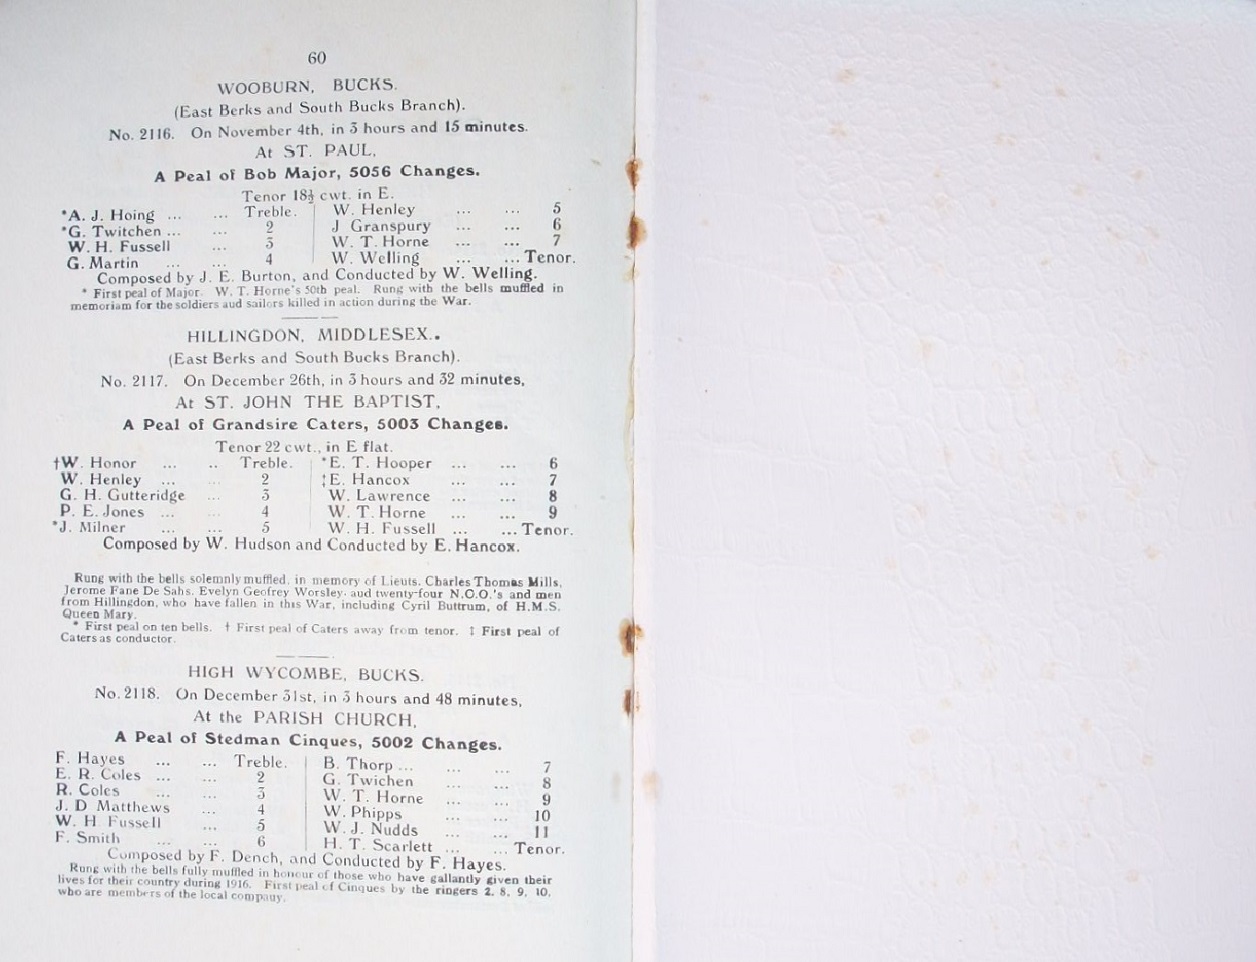 60
WOOBURN, BUCKS.
(East Berks and South Bucks Branch).
No. 2116. On November 4th, in 3 hours and 15 minutes.
At ST. PAUL,
A Peal of Bob Major, 5056 Changes.
Tenor 18½ cwt. in E.
*A. J. Hoing ... ... Treble. W. Henley ... ... 5
*G. Twitchen ... ... 2 J Granspury ... ... 6
W. H. Fussell ... 3 W. T. Horne ... ... 7
G. Martin ... ... 4 W. Welling ... ... Tenor.
Composed by J. E. Burton, and Conducted by W. Welling.
* First peal of Major. W. T. Horne's 50th peal. Rung with the bells muffled in
memoriam for the soldiers aud sailors killed in action during the War.
HILLINGDON, MIDDLESEX..
(East Berks and South Bucks Branch).
No. 2117. On December 26th, in 3 hours and 32 minutes,
At ST. JOHN THE BAPTIST,
A Peal of Grandsire Caters, 5003 Changes.
Tenor 22 cwt., in E flat.
†W. Honor ... .. Treble. *E. T. Hooper ... ... 6
W. Henley ... ... 2 ‡E. Hancox ... ... 7
G. H. Gutteridge ... 3 W. Lawrence ... ... 8
P. E. Jones ... ... 4 W. T. Horne ... ... 9
*J. Milner ... ... 5 W. H. Fussell ... ... Tenor.
Composed by W. Hudson and Conducted by E. Hancox.
Rung with the bells solemnly muffled, in memory of Lieuts. Charles Thomas Mills,
Jerome Fane De Sahs, Evelyn Geofrey Worsley, aud twenty-four N.O.O.'s and men
from Hillingdon, who have fallen in this War, including Cyril Buttrum, of H.M.S.
Queen Mary.
* First peal on ten bells. † First peal of Caters away from tenor. ‡ First peal of
Caters as conductor.
HIGH WYCOMBE, BUCKS.
No. 2118. On December 31st, in 3 hours and 48 minutes,
At the PARISH CHURCH,
A Peal of Stedman Cinques, 5002 Changes.
F. Hayes ... ... Treble. B. Thorp ... ... ... 7
E. R. Coles ... ... 2 G. Twichen ... ... 8
R. Coles ... ... 3 W. T. Horne ... ... 9
J. D Matthews ... 4 W. Phipps ... ... 10
W. H. Fussell ... 5 W. J. Nudds ... ... 11
F. Smith ... ... 6 H. T. Scarlett ... ... Tenor.
Composed by F. Dench, and Conducted by F. Hayes.
Rung with the bells fully muffled in honour of those who have gallantly given their
lives for their country during 1916. First peal of Cinques by the ringers 2, 8, 9, 10,
who are members of the local compauy.